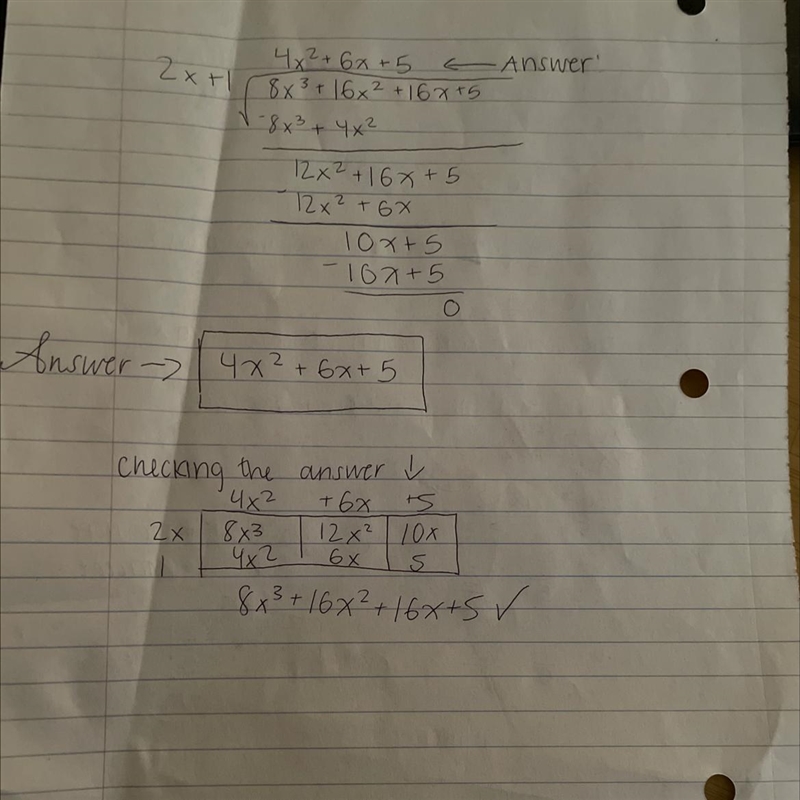 4x² + 6x + 5 ← Answer
2x + 1 √ 8x³ + 16x² + 16x + 5
-8x³ + 4x²
12x² + 16x + 5
- 12x² + 6x
10x + 5
- 10x + 5
0
Answer → 4x² + 6x + 5
checking the answer ↓
4x² + 6x + 5
2x 8x³ 12x² 10x
1 4x² 6x 5
8x³ + 16x² + 16x + 5 ✓